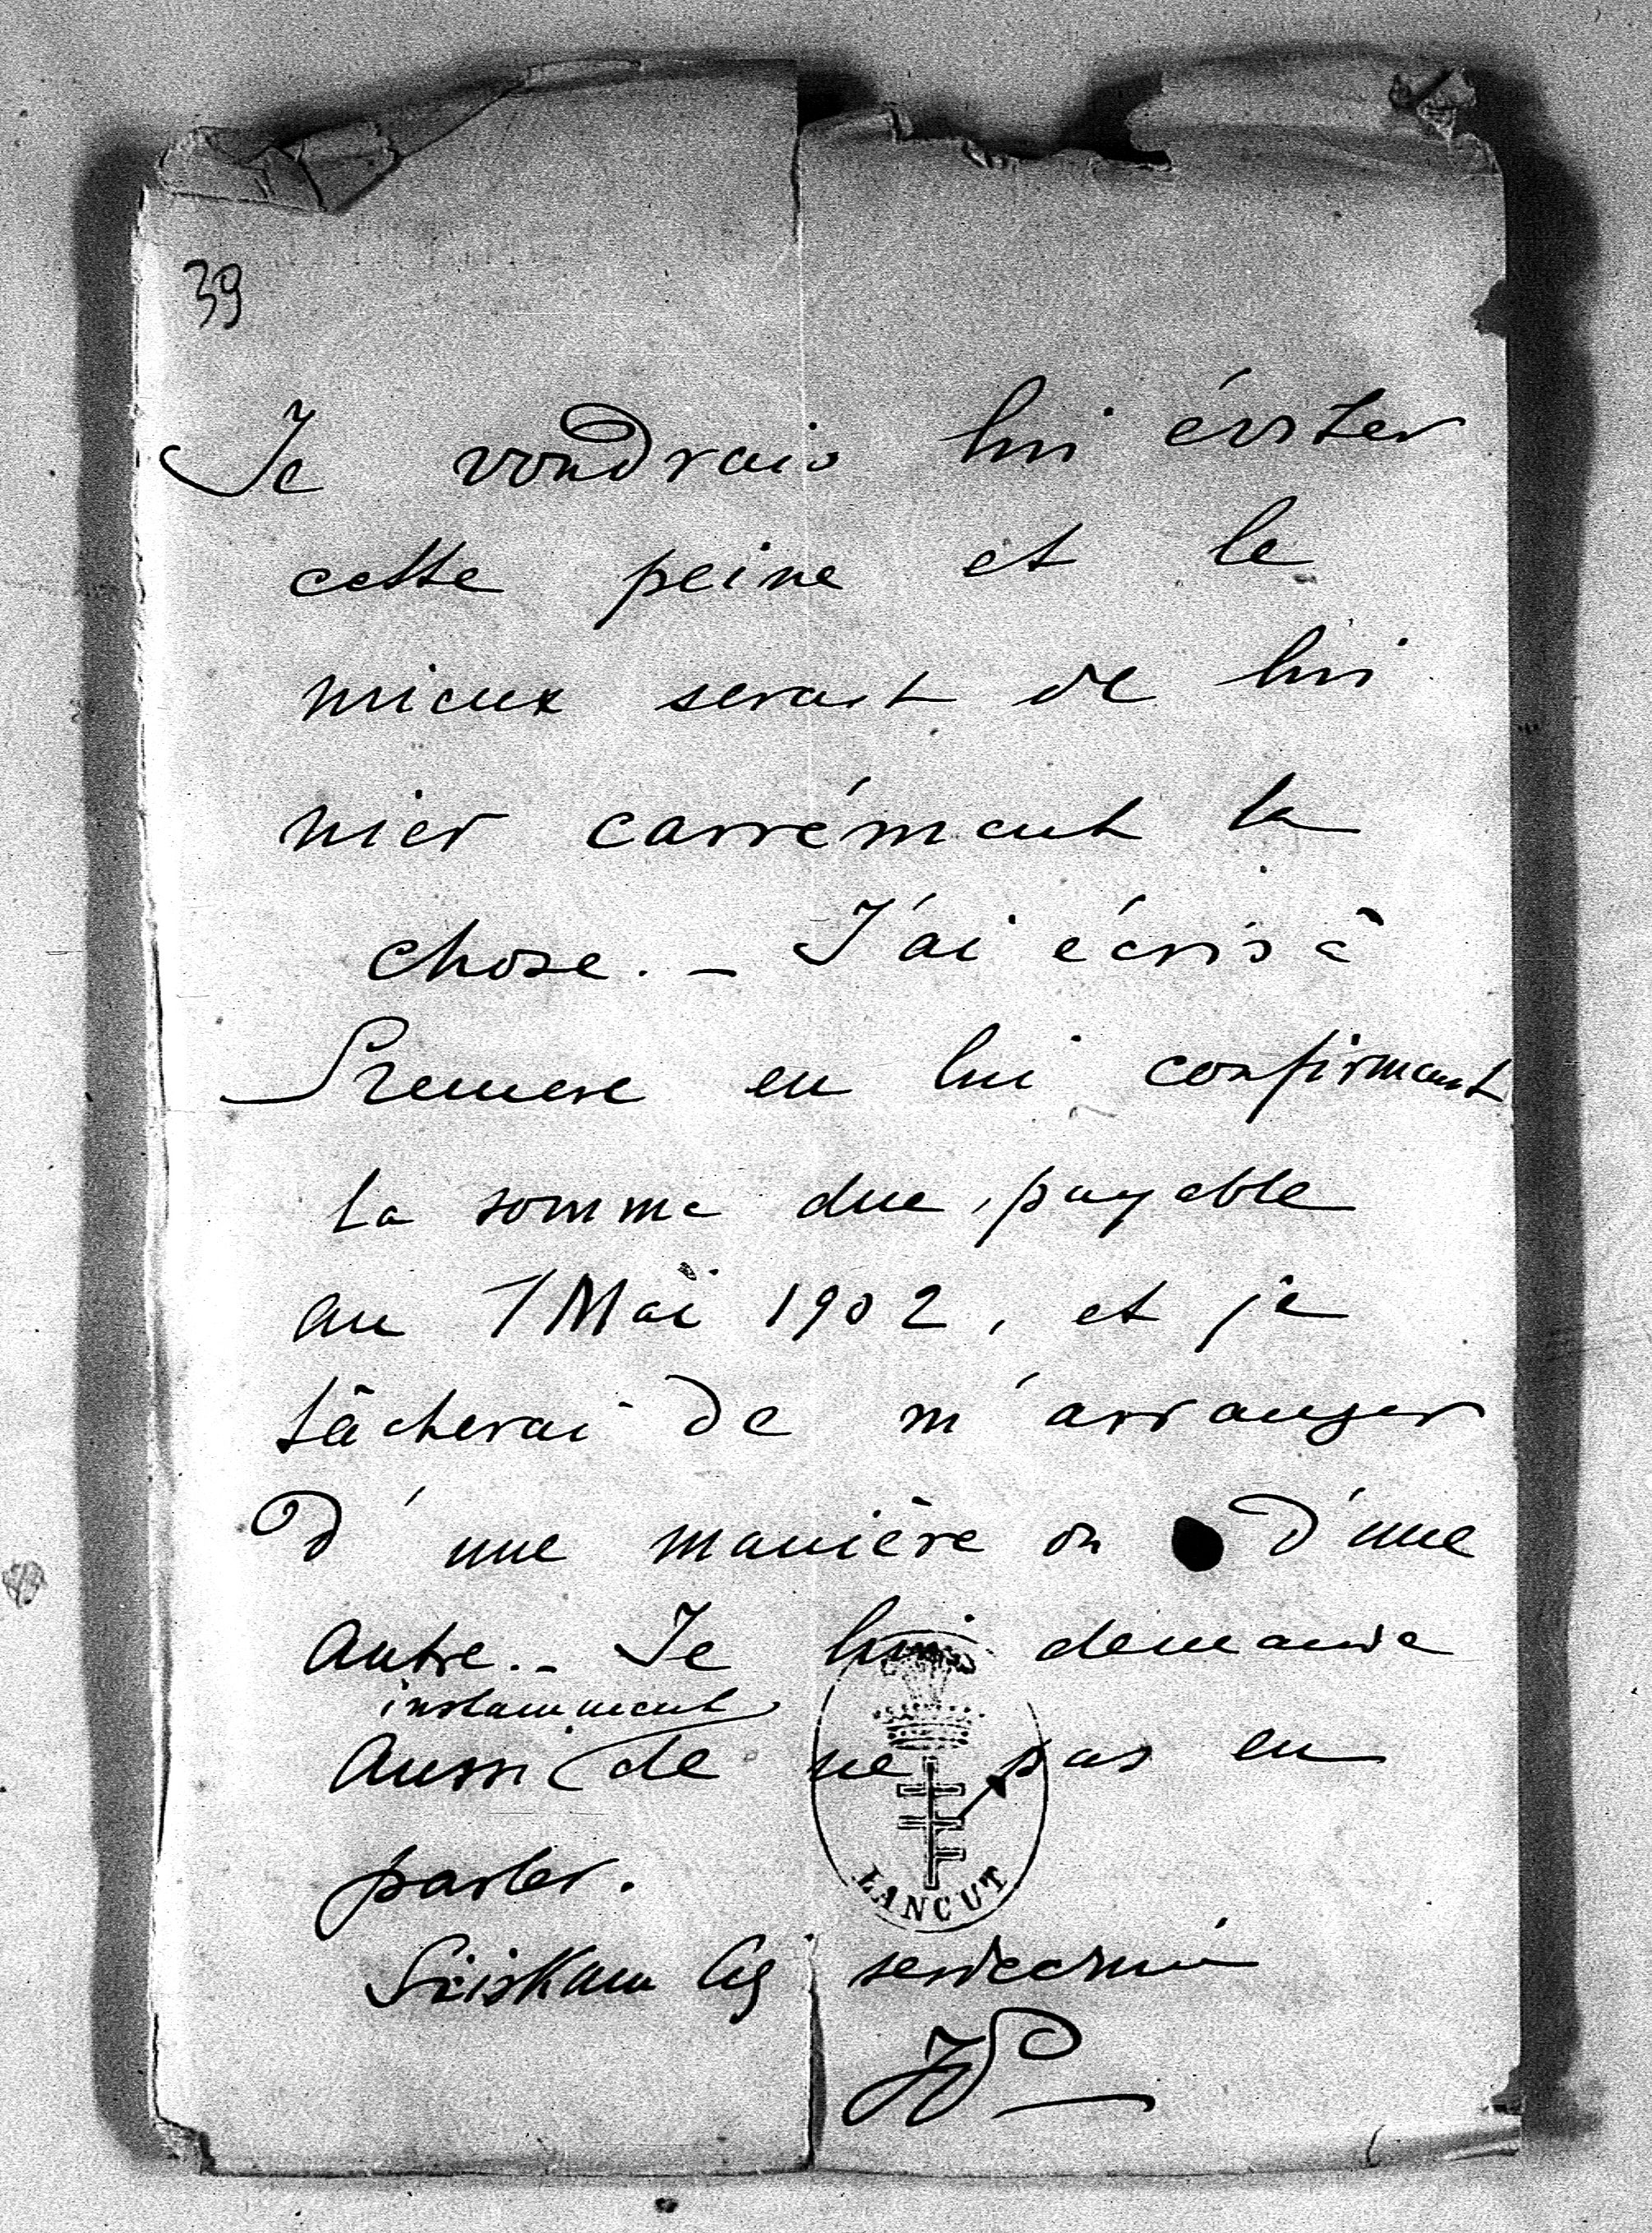 39
Je voudrais lui éviter
cette peine et le
mieux serait de lui
nier carrément la
chose. _ J'ai écris à
en lui confirmant
la somme due, payable
au 1 Mai 1902, et je
tâcherai de m'arranger
d'une manière ou d'une
autre. _ Je lui demande
instamment
aussi de ne pas en
parler.
Sciskam Cię serdecznie
LANCUT